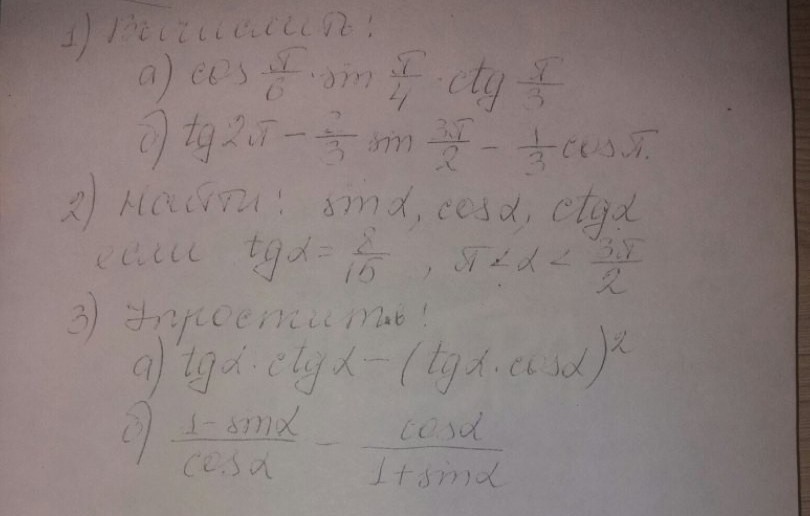 1) Вычислить!
а) cos π/6 · sin π/4 · ctg π/3
б) tg 2π − 2/3 sin 3π/2 − 1/3 cos π.
2) Найти! sinα, cosα, ctgα
если tgα = 8/15, π < α < 3π/2
3) Упростить!
а) tgα · ctgα − (tgα · cosα)²
б) (1 − sinα)/cosα − cosα/(1 + sinα)